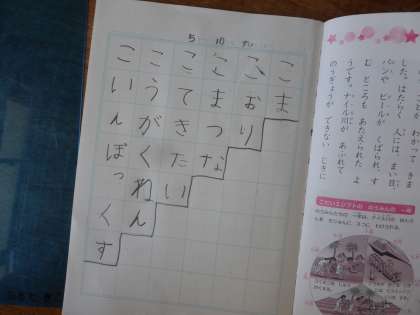 した。はたらく 人には、まい日
パンや ビールが くばられ、す
む ところも あたえられた よ
うです。ナイル川が あふれて
のうぎょうが できない じきに
こだいエジプトの のうみんの 一年
こま
こおり
こまつな
こてきたい
こうがくねん
こいんぼっくす